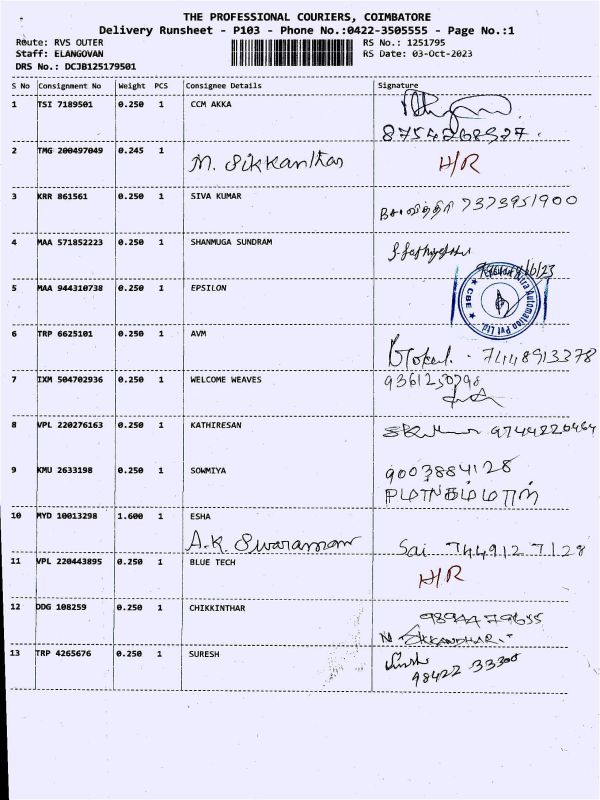 THE PROFESSIONAL COURIERS, COIMBATORE
Delivery Runsheet - P103 - Phone No.:0422-3505555 - Page No.:1
Route: RVS OUTER RS No.: 1251795
Staff: ELANGOVAN RS Date: 03-Oct-2023
DRS No.: DCJB125179501
S No Consignment No Weight PCS Consignee Details Signature
1 TSI 7189501 0.250 1 CCM AKKA
2 TMG 200497049 0.245 1 M. Sikkanthar H/R
3 KRR 861561 0.250 1 SIVA KUMAR 7373951900
4 MAA 571852223 0.250 1 SHANMUGA SUNDRAM
5 MAA 944310738 0.250 1 EPSILON
Automation Pvt Ltd. CBE
6 TRP 6625101 0.250 1 AVM
Gokul. - 7448913378
7 IXM 504702936 0.250 1 WELCOME WEAVES 9361250798
8 VPL 220276163 0.250 1 KATHIRESAN 9744220464
9 KMU 2633198 0.250 1 SOWMIYA 9003884128
10 MYD 10013298 1.600 1 ESHA
A.K. Swaraman Sai 7449127128
11 VPL 220443895 0.250 1 BLUE TECH H/R
12 DDG 108259 0.250 1 CHIKKINTHAR 9894479655
N SIKKANDHAR.
13 TRP 4265676 0.250 1 SURESH
98422 33300